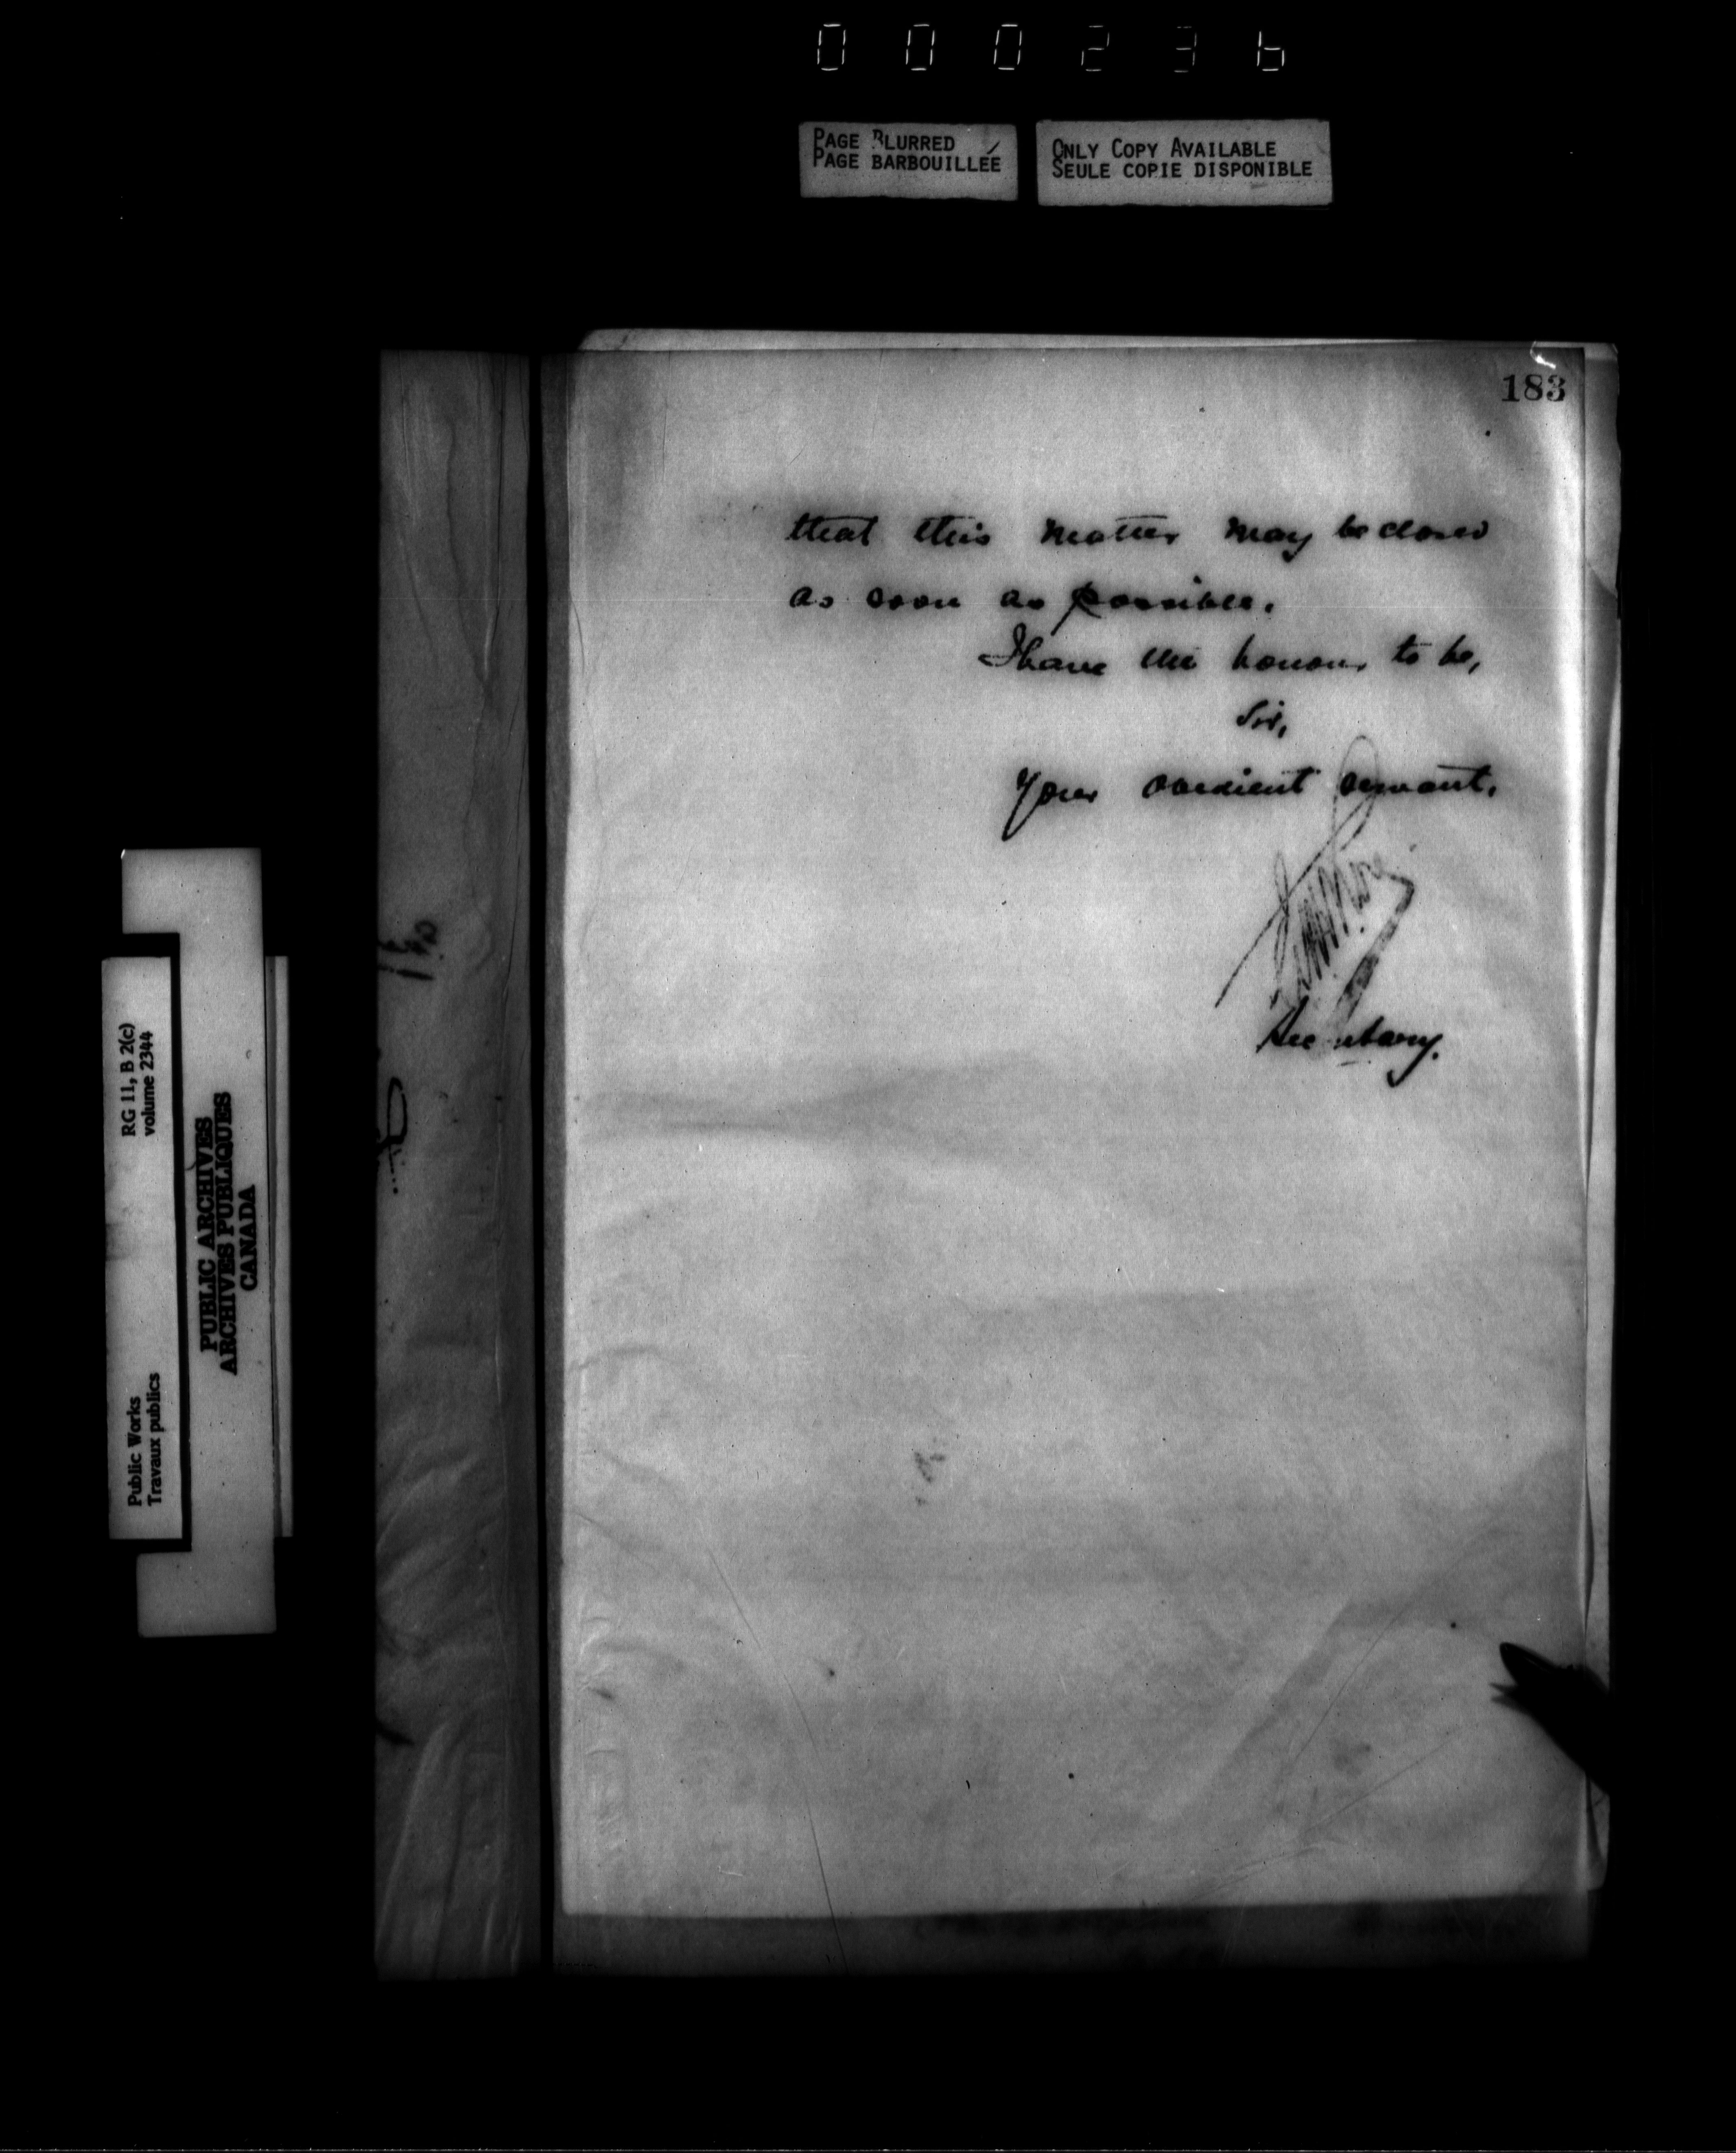 000236
PAGE BLURRED
PAGE BARBOUILLÉE
ONLY COPY AVAILABLE
SEULE COPIE DISPONIBLE
183
that this matter may be closed
as soon as possible.
I have the honour to be,
Sir,
Your obedient servant.
Secretary.
RG 11, B 2(c)
volume 2344
Public Works
Travaux publics
PUBLIC ARCHIVES
ARCHIVES PUBLIQUES
CANADA